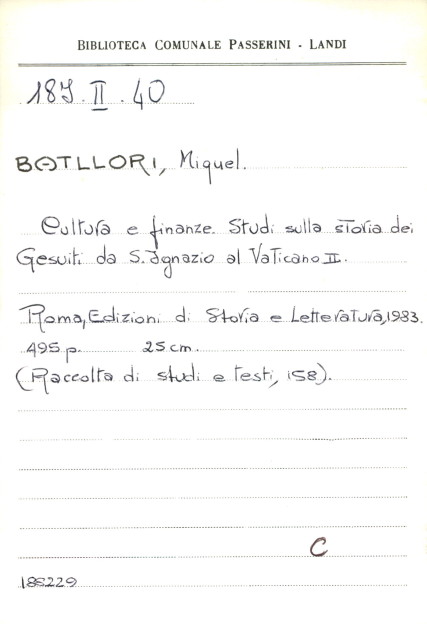 BIBLIOTECA COMUNALE PASSERINI - LANDI
189.II.40
BATLLORI, Miquel.
Cultura e finanze. Studi sulla storia dei
Gesuiti da S. Ignazio al Vaticano II.
Roma, Edizioni di Storia e Letteratura, 1983.
495 p. 25 cm.
(Raccolta di studi e testi, 158).
C